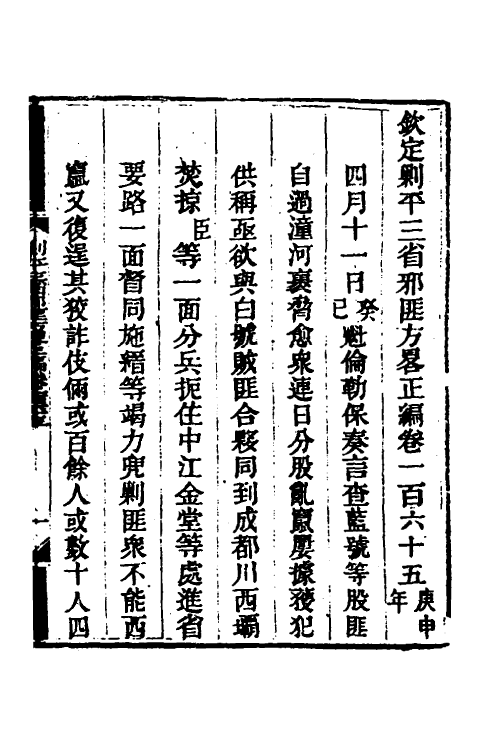 欽定剿平三省邪匪方畧正編卷一百六十五庚申年
四月十一日癸巳魁倫勒保奏言查藍號等股匪
自過潼河裹脅愈衆連日分股亂竄屢據獲犯
供稱亟欲與白號賊匪合夥同到成都川西壩
焚掠臣等一面分兵扼住中江金堂等處進省
要路一面督同施縉等竭力兜剿匪衆不能西
竄又復逞其狡詐伎倆或百餘人或數十人四